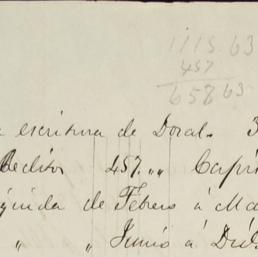 1115.63
457
658 63
escritura de Doral. 3
Redito 457. ,, Capi
de Febero á Ma
,, ,, Junio á Dic